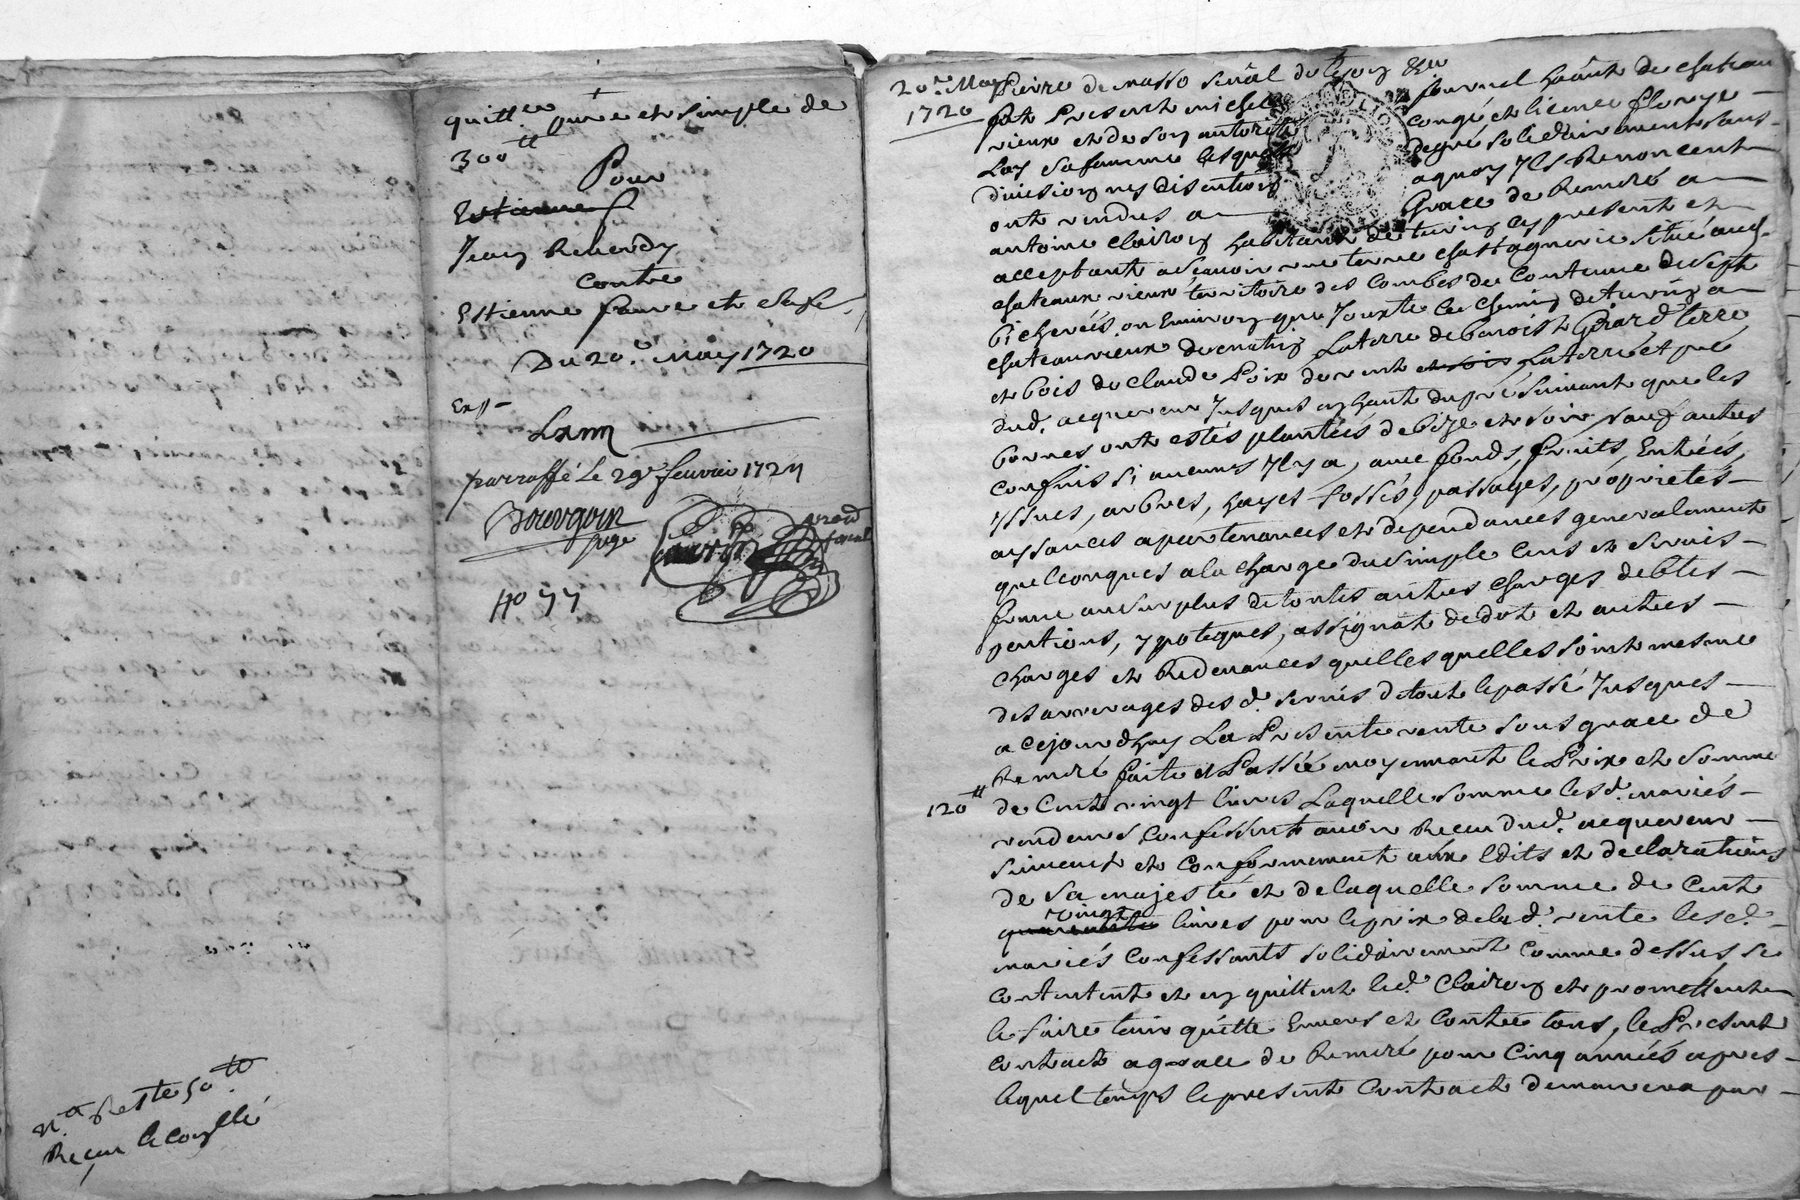 quitt.ce pure et simple de
300tt
Pour
Estienne
Jean Reverdy
contre
Estienne faure et
Du 20.e May 1720
Exp.
parraffé Le 29e feuvrier 1724
Bourgoin
juge
No 77
N.a Reste 50tt
Receu le
20.me May
1720
fut Present michel fournel habitant de chateau
vieux et de son autorité congé et licence fleurye
sa femme lesquels de gré solidairement sans
division ny discution a quoy ils Renoncent
ont vendus a Grace de Remeré a
antoine Clairon habitant de turin cy present et
acceptant a sçavoir une terre chattagnerie situé aud.
chateauxvieux territoire des Combes de Contenue de sept
bicherées ou Environ que Jouxte le Chemin de turin a
chateauvieux de matin La terre de benoist Girard terre
et bois de Claude Poix de vent et bois La terre et pré
dud. acquereur Jusques au haut du pré suivant que les
bornes ont estés plantées de bize et soir sauf autres
Confins si aucunes Il y a, avec fonds, fruits, Entrées,
yssues, arbres, hayes fossés, passages, proprietés
aysances apartenances et dependances generalement
quelconques a la charge du simple Cens et servis
franc au surplus de toutes autres charges debtes
pentions, ypoteques, assignat de dot et autres
charges et Redevances quelles quelles soint mesme
des arrerages des d. servis de tout le passé Jusques
a cejourdhuy La Presente vente sous grace de
Remeré faite et Passée moyennant le Prix et somme
120tt de Cent vingt livres Laquelle somme lesd. mariés
vendeurs Confessent avoir Receu dud. acquereur
suivant et Conformement aux Edits et declarations
de sa majesté et de laquelle somme de Cent
vingt
quarante livres pour le prix de lad. vente lesd.
mariés Confessants solidairement comme dessus se
Contentent et en quittent led. Clairon et promettent
le faire tenir quitte Envers et Contre tous, le Present
Contract a grace de Remeré pour Cinq années apres
lequel temps le present Contract demeurera pur